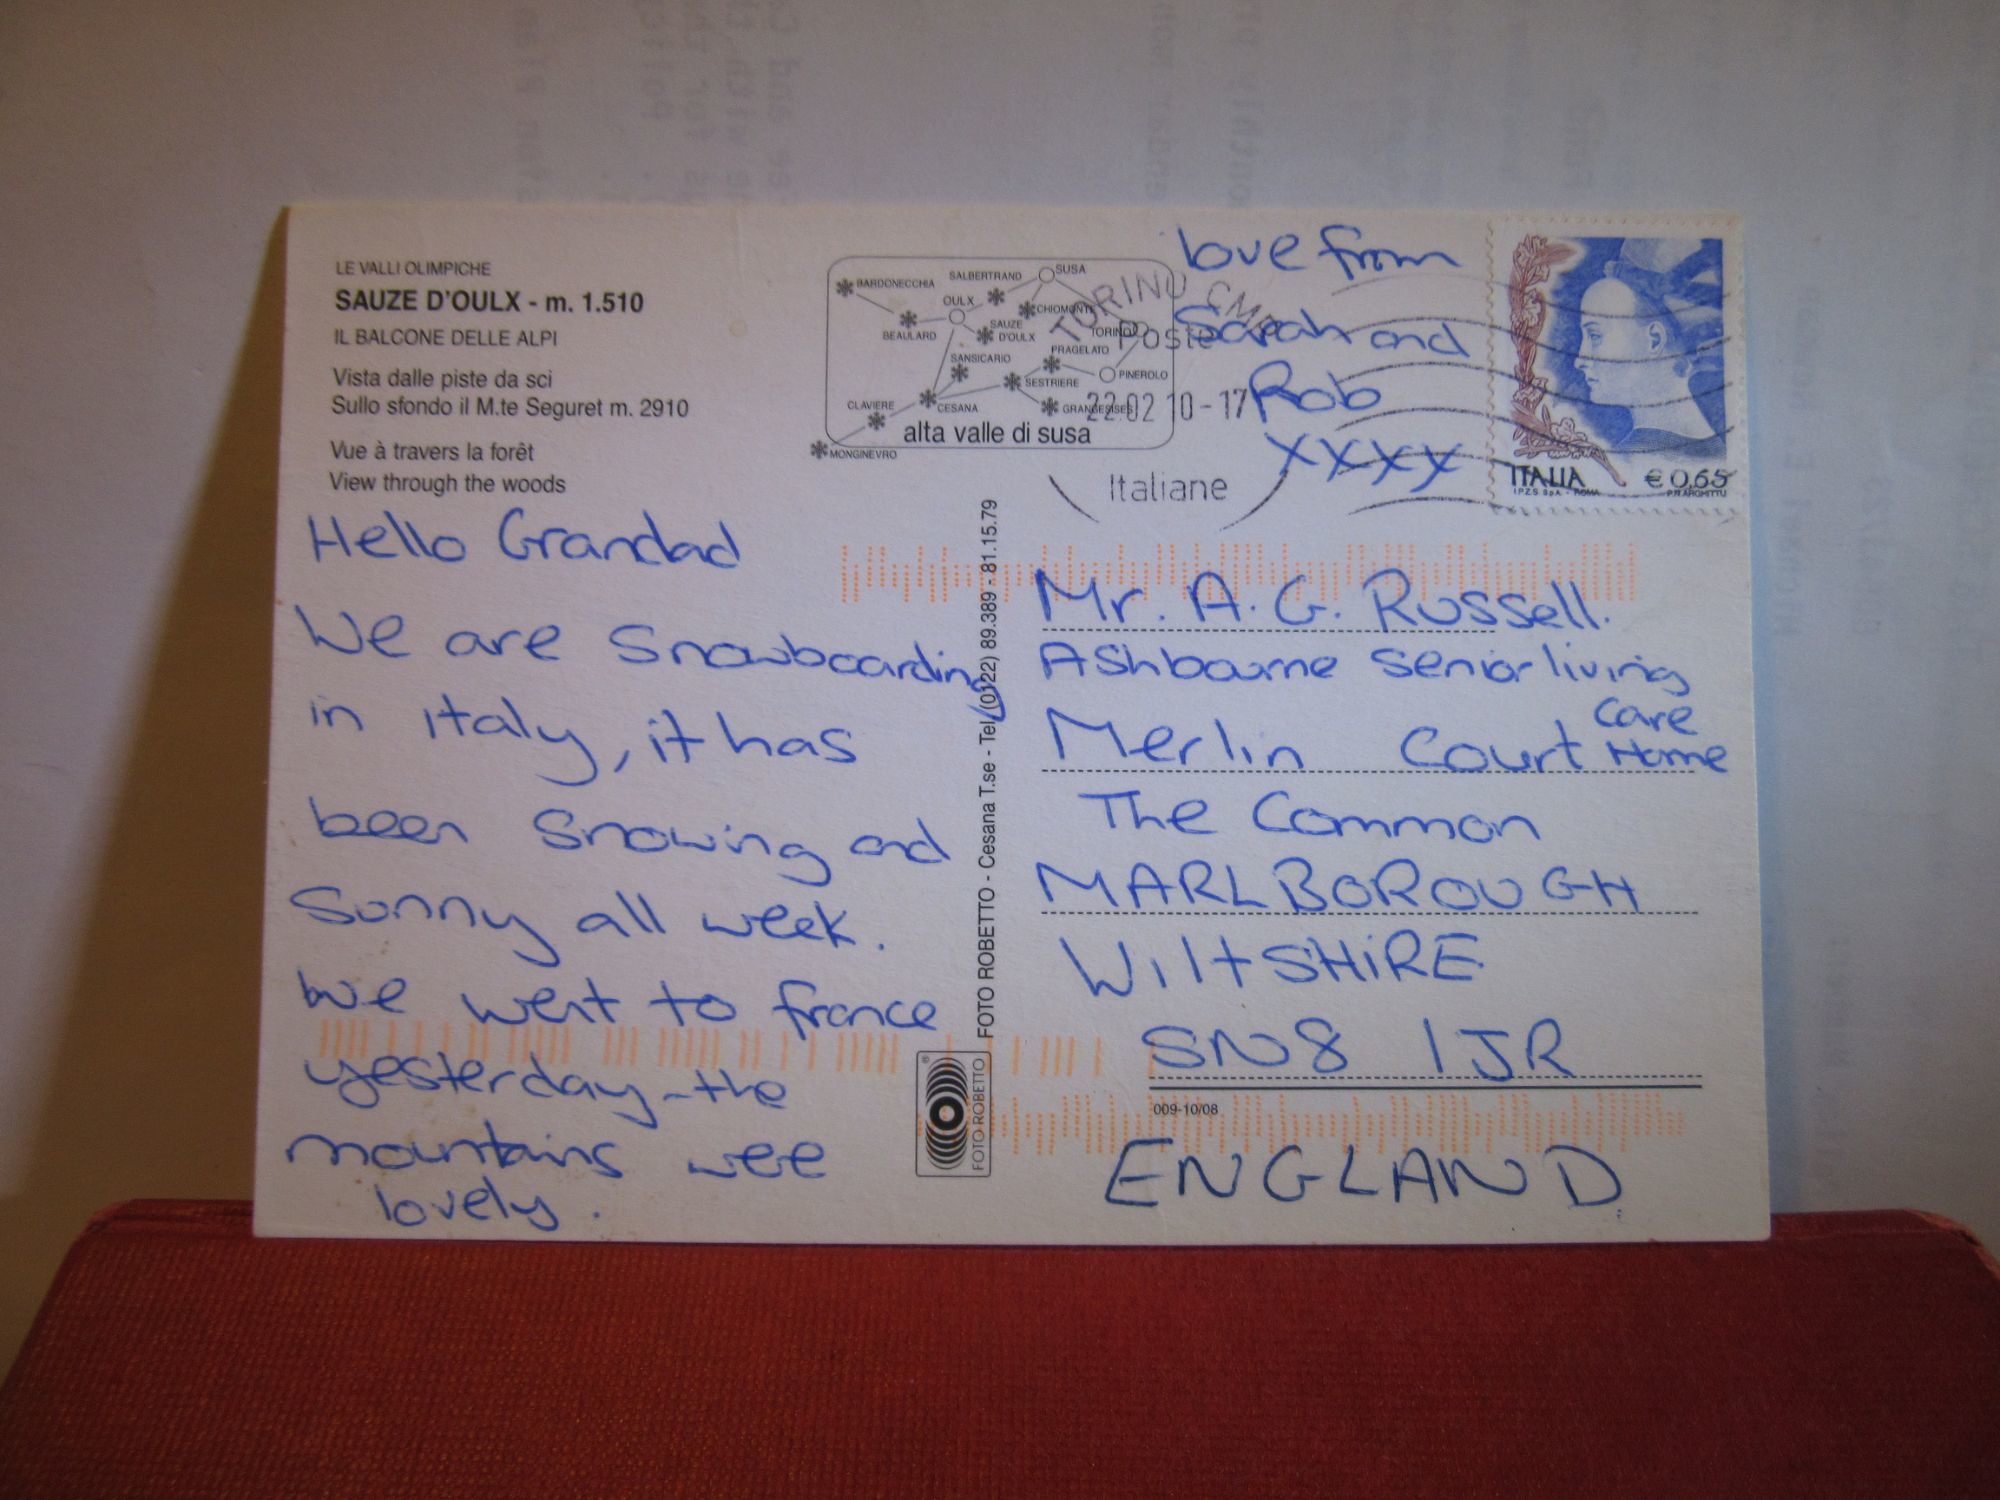 LE VALLI OLIMPICHE
SAUZE D'OULX - m. 1.510
IL BALCONE DELLE ALPI
Vista dalle piste da sci
Sullo sfondo il M.te Seguret m. 2910
Vue à travers la forêt
View through the woods
Hello Grandad
We are snowboarding
in Italy, it has
been snowing and
Sunny all week.
We went to france
yesterday - the
mountains wee
lovely.
BARDONECCHIA
SALBERTRAND
SUSA
OULX
CHIOMONTE
BEAULARD
SAUZE
D'OULX
TORINO
SANSICARIO
PRAGELATO
SESTRIERE
PINEROLO
CLAVIERE
CESANA
GRANGESISES
alta valle di susa
MONGINEVRO
TORINO CMP
Poste
22.02 10-17
Italiane
love from
Sarah and
Rob
xxxx
ITALIA
€ 0,65
I.P.Z.S. S.p.A. - ROMA
P. ARGHITTU
FOTO ROBETTO - Cesana T.se - Tel. (0122) 89.389 - 81.15.79
FOTO ROBETTO
®
Mr. A. G. Russell.
Ashbourne Senior living
Merlin Court Care Home
The Common
MARLBOROUGH
WIltSHiRE
SN8 1JR
009-10/08
ENGLAND